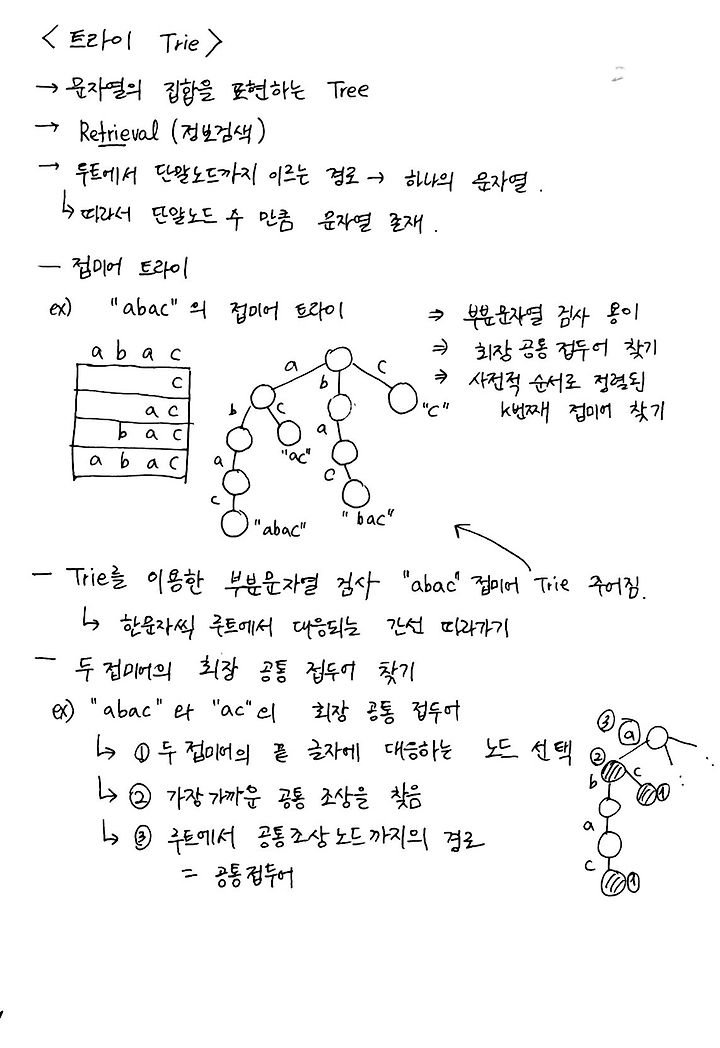 < 트라이 Trie >
→ 문자열의 집합을 표현하는 Tree
→ Retrieval (정보검색)
→ 루트에서 단말노드까지 이르는 경로 → 하나의 문자열.
↳ 따라서 단말노드 수 만큼 문자열 존재.
— 접미어 트라이
ex) "abac"의 접미어 트라이
⇒ 부분문자열 검사 용이
⇒ 최장 공통 접두어 찾기
⇒ 사전적 순서로 정렬된
k번째 접미어 찾기
a b a c
c
a c
b a c
a b a c
a b c
b c a "c"
a "ac" c
c "bac"
"abac"
— Trie를 이용한 부분문자열 검사 "abac" 접미어 Trie 주어짐.
↳ 한문자씩 루트에서 대응되는 간선 따라가기
— 두 접미어의 최장 공통 접두어 찾기
ex) "abac" 와 "ac"의 최장 공통 접두어
↳ ① 두 접미어의 끝 글자에 대응하는 노드 선택
↳ ② 가장 가까운 공통 조상을 찾음
↳ ③ 루트에서 공통조상 노드까지의 경로
= 공통접두어
③ a
②
b c ①
a
c ①